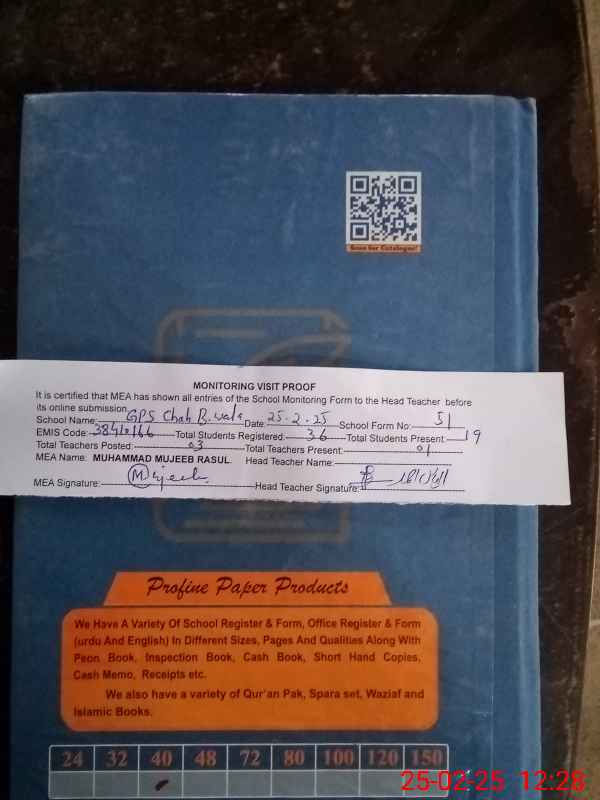 Scan for Catalogue!
MONITORING VISIT PROOF
It is certified that MEA has shown all entries of the School Monitoring Form to the Head Teacher before
its online submission
School Name: GPS Chah B. wala Date: 25-2-25 School Form No: 51
EMIS Code: Total Students Registered: 36 Total Students Present: 19
Total Teachers Posted: 03 Total Teachers Present: 01
MEA Name: MUHAMMAD MUJEEB RASUL Head Teacher Name:
MEA Signature: Mujeeb Head Teacher Signature:
Profine Paper Products
We Have A Variety Of School Register & Form, Office Register & Form
(urdu And English) In Different Sizes, Pages And Qualities Along With
Peon Book, Inspection Book, Cash Book, Short Hand Copies,
Cash Memo, Receipts etc.
We also have a variety of Qur'an Pak, Spara set, Waziaf and
Islamic Books.
24 32 40 48 72 80 100 120 150
25-02-25 12:28